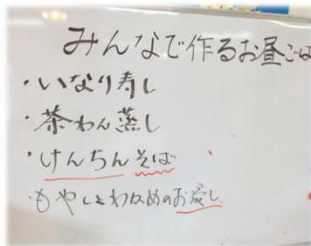 みんなで作るお昼ごは
・いなり寿し
・茶わん蒸し
・けんちんそば
・もやしとわかめのお浸し